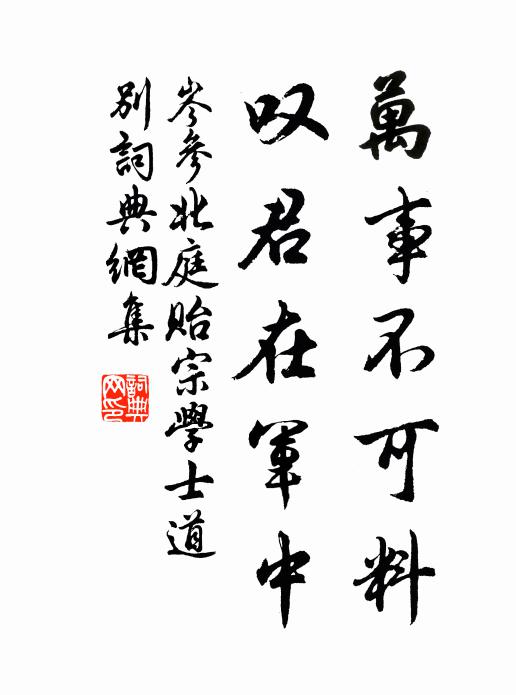 萬事不可料
叹君在軍中
岑參北庭貽宗學士道
别詞典網集
詞典网印